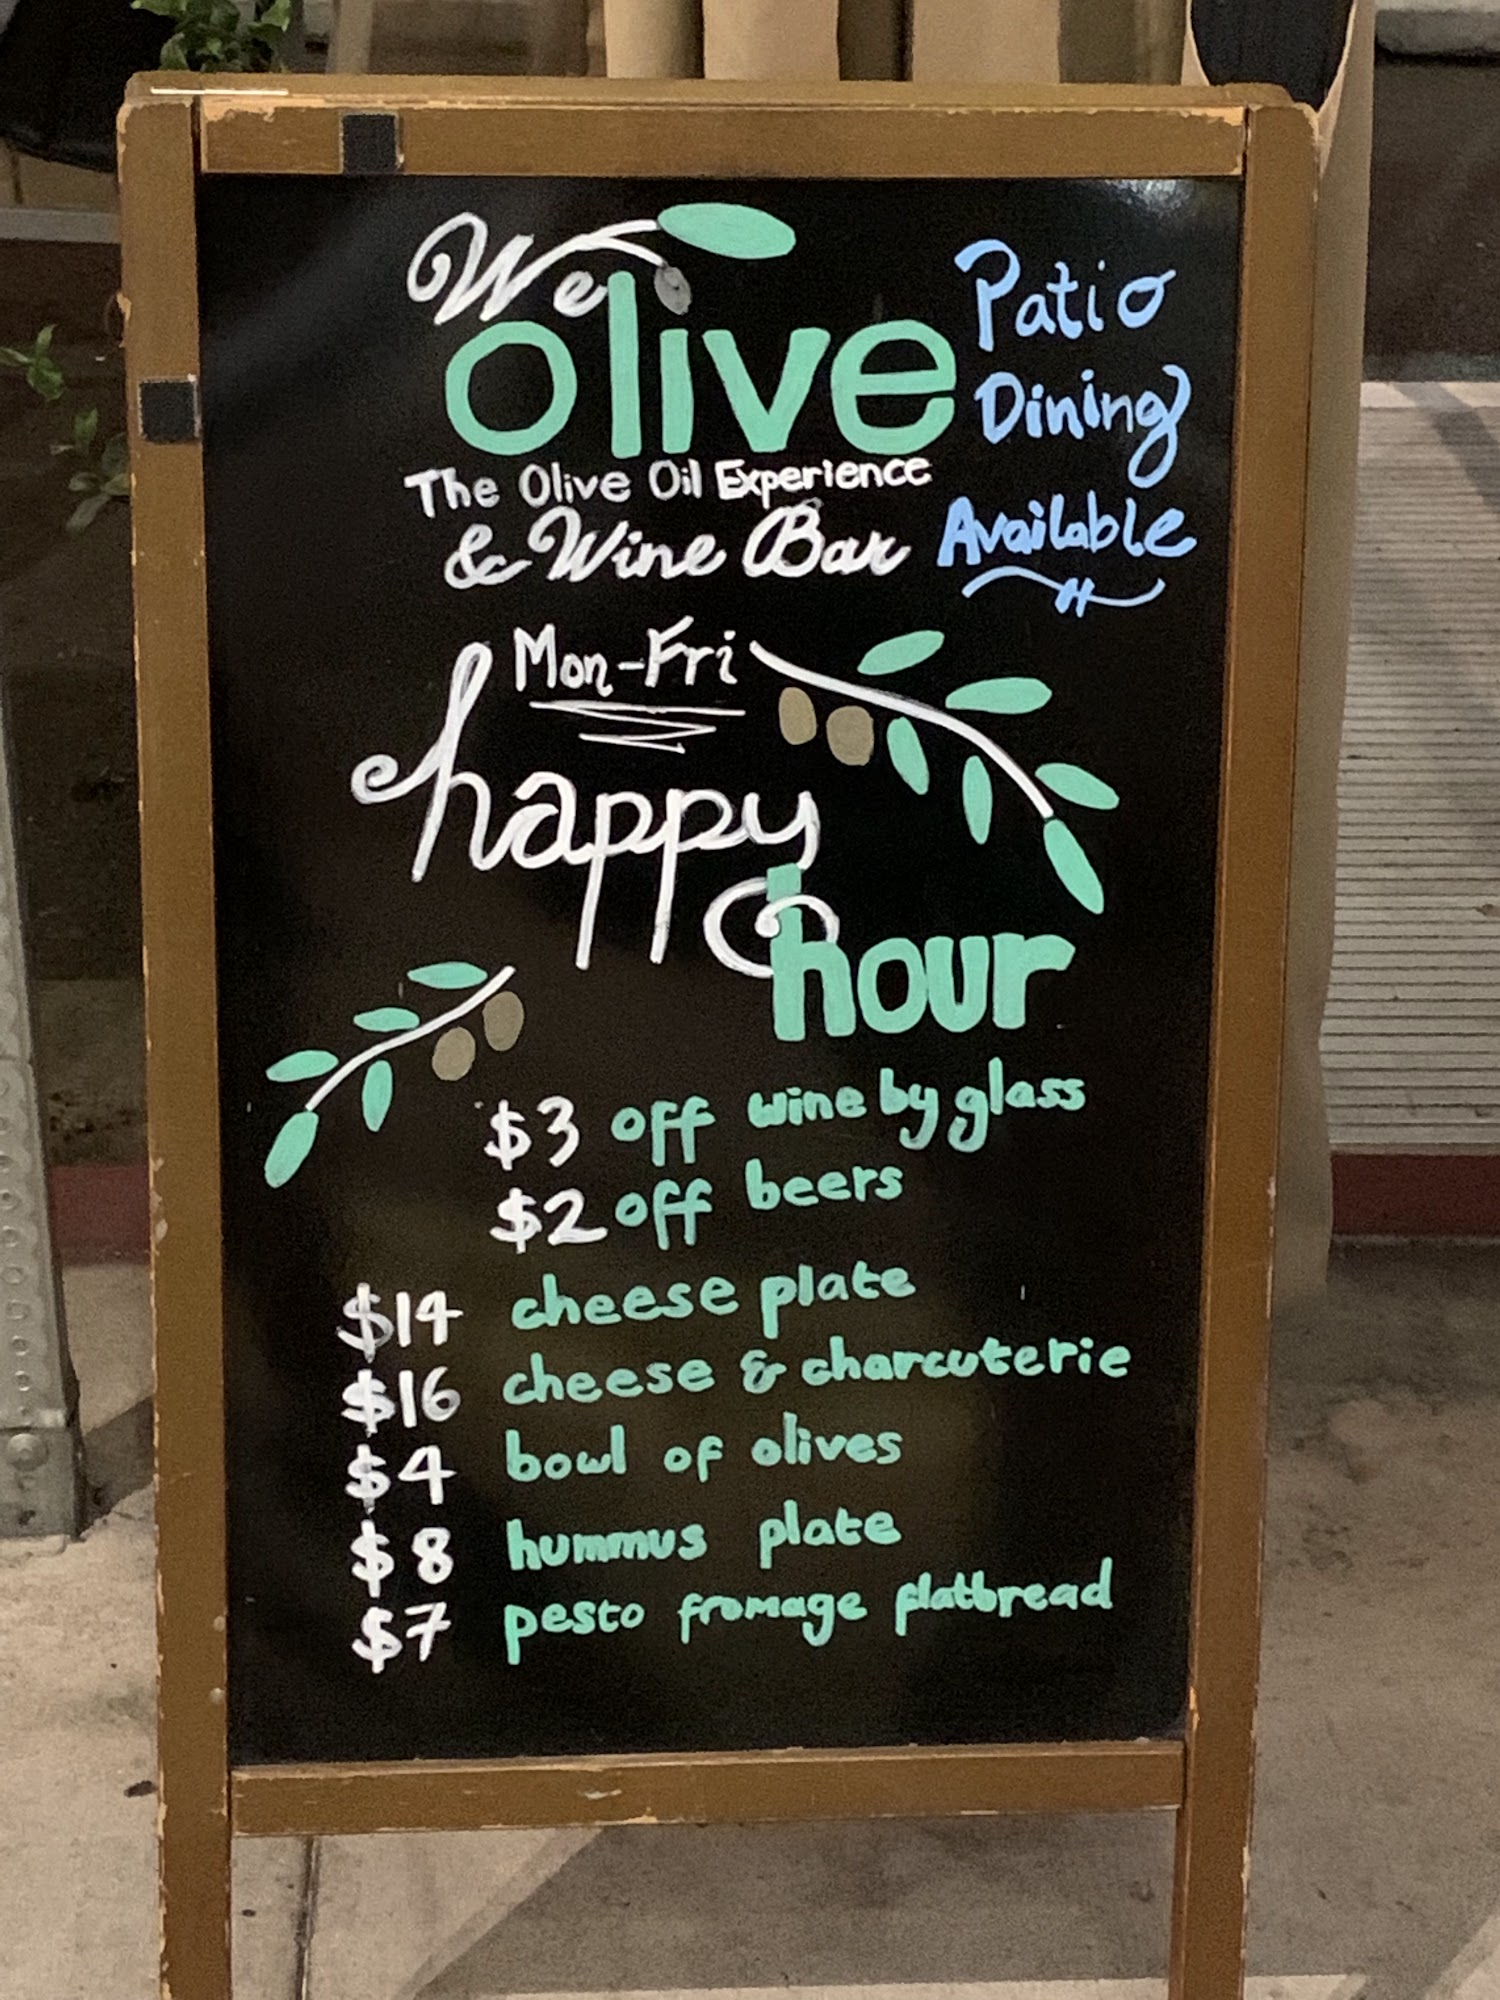 We
olive
The Olive Oil Experience
& Wine Bar
Patio
Dining
Available
Mon-Fri
happy
hour
$3 off wine by glass
$2 off beers
$14 cheese plate
$16 cheese & charcuterie
$4 bowl of olives
$8 hummus plate
$7 pesto fromage flatbread